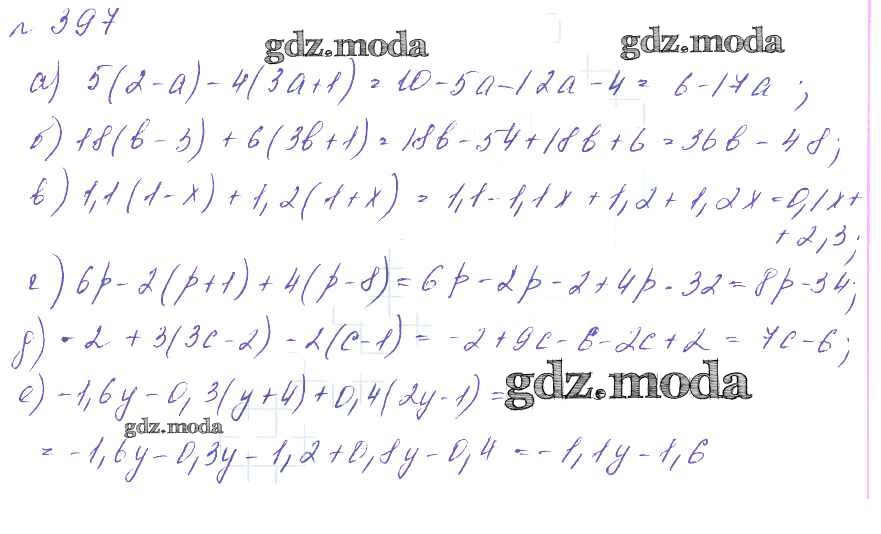 № 397
gdz.moda gdz.moda
а) 5(2-a)-4(3a+1)=10-5a-12a-4= 6-17a ;
б) 18(b-3)+6(3b+1)=18b-54+18b+6=36b-48;
в) 1,1(1-x)+1,2(1+x) = 1,1-1,1x+1,2+1,2x=0,1x+
+2,3;
г) 6p-2(p+1)+4(p-8)=6p-2p-2+4p-32=8p-34;
д) -2+3(3c-2)-2(c-1)= -2+9c-6-2c+2= 7c-6;
е) -1,6y-0,3(y+4)+0,4(2y-1)=
gdz.moda
gdz.moda
= -1,6y-0,3y-1,2+0,8y-0,4 =-1,1y-1,6